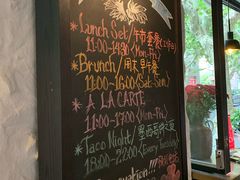 *Lunch Set/特蛋餐(工作日)
11:00-14:30(Mon-Fri)
*Brunch/周末早午餐
11:00-16:00(Sat-Sun)
*A LA CARTE
11:00-17:00(Mon-
*Taco Night/墨西哥
18:00-22:00(Every Tuesday)